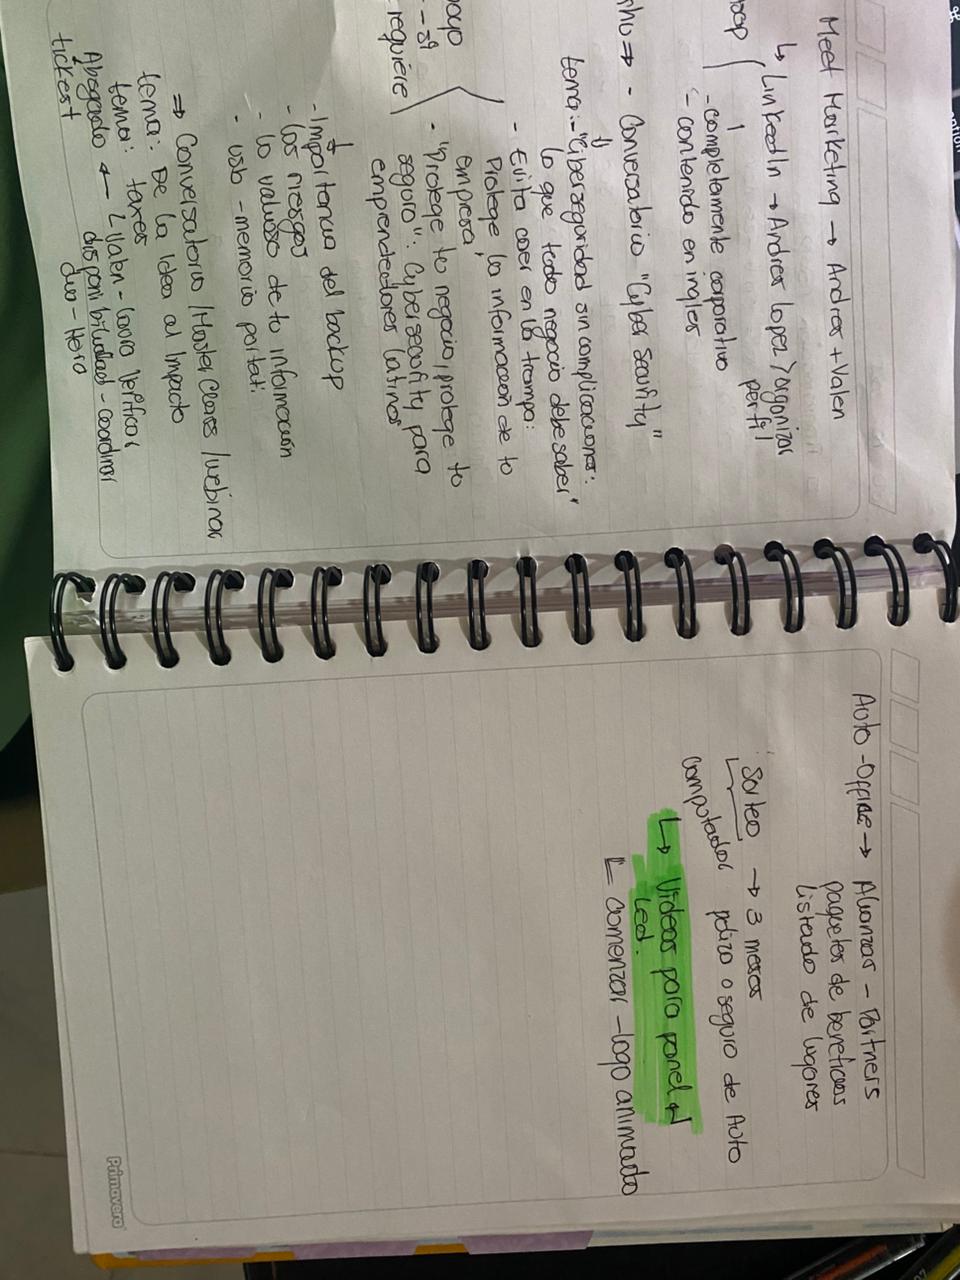 Meet Marketing → Andres + Valen
↳ LinkedIn → Andres Lopez > organizar
perfil
- completamente corporativo
- contenido en ingles
⇒ - Conversatorio "Cyber security"
tema:- "Ciberseguridad sin complicaciones:
lo que todo negocio debe saber"
- Evita caer en la trampa:
Protege la informacion de tu
empresa,
- "Protege tu negocio, protege tu
seguro": Cybersecurity para
emprendedores latinos
requiere
- Importancia del backup
- los riesgos
- lo valioso de tu información
- usb - memoria portati.
⇒ Conversatorio / Master Clases / webinar
tema: De la Idea al Impacto
tema: taxes
Abogado ← Valen - Laura Verificar
disponibilidad - coordinar
tickest
duo - Hero
Auto - Office → Alianzas - Partners
paquetes de beneficios
listado de lugares
Sorteo → 3 meses
computador poliza o seguro de Auto
↳ Videos para panel
led.
comenzar - logo animado
Primavera